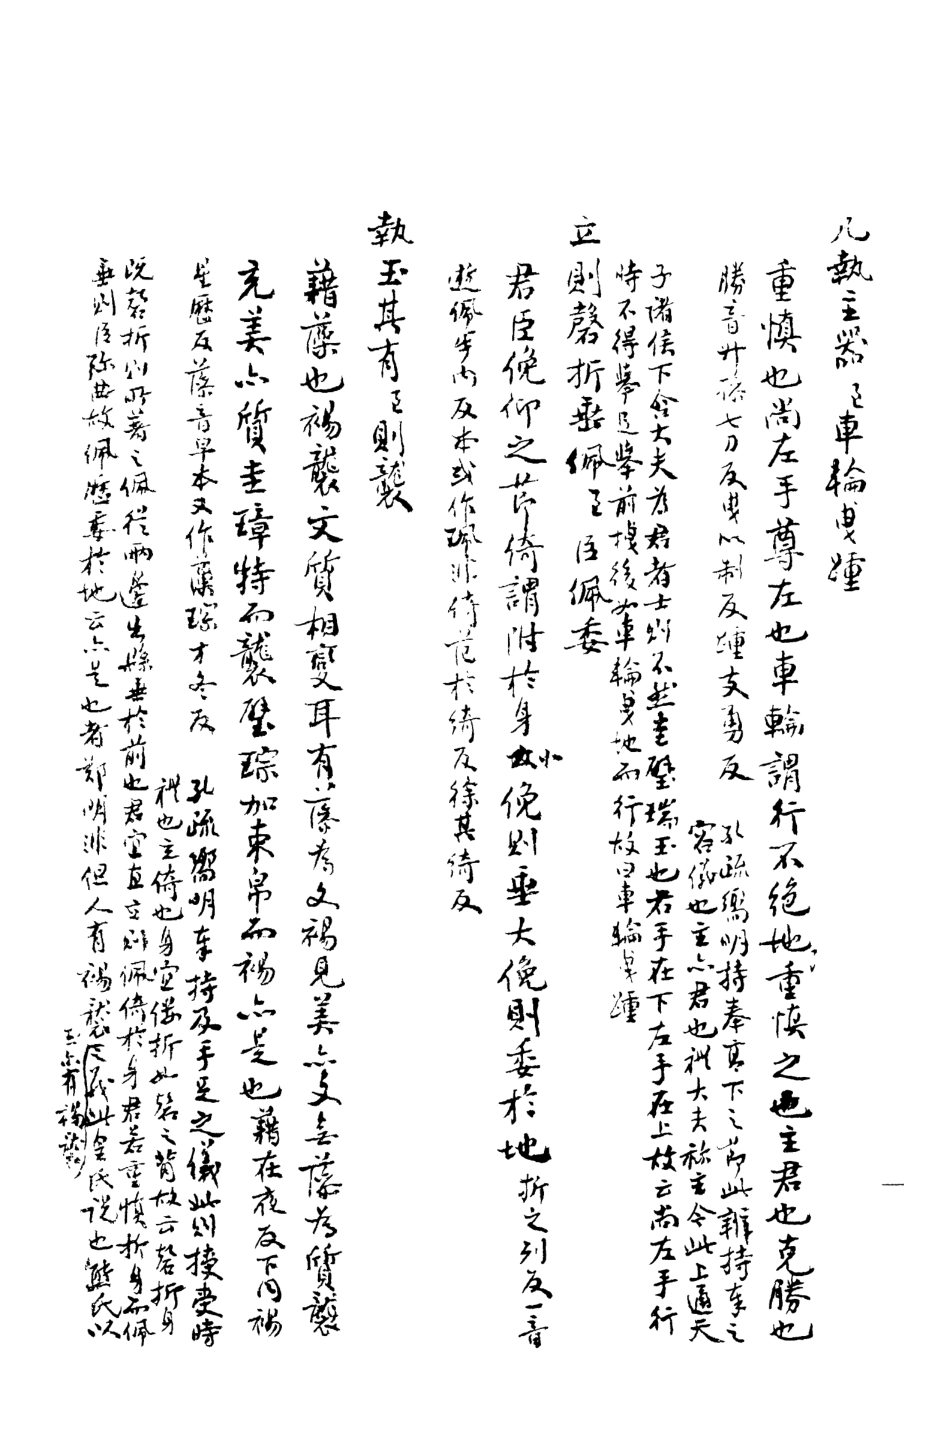 凡執主器至車輪曳踵
重慎也尚左手尊左也車輪謂行不絕地重慎之也主君也克勝也
勝音升操七刀反曳以制反踵支勇反
孔疏鄉明持奉高下之節此辨持奉之
容儀也主亦君也禮大夫称主今此上通天
子諸侯下含大夫為君者士則不然圭璧瑞玉也右手在下左手在上故云尚左手行
時不得舉足舉前拽後如車輪曳地而行故曰車輪曳踵
立則磬折垂佩至臣佩委
君臣俛仰之節倚謂附於身小俛則垂大俛則委於地折之列反一音
逝佩步內反本或作珮非倚范於綺反徐其綺反
執玉其有至則襲
藉藻也裼襲文質相變耳有藻為文裼見美亦文無藻為質襲
充美亦質圭璋特而襲璧琮加束帛而裼亦是也藉在夜反下同裼
星歷反藻音早本又作藻琮才冬反
孔疏鄉明奉持及手足之儀此則授受時
禮也主倚也身宜僂折如磬之背故云磬折身
既磬折則所著之佩從兩邊出縣垂於前也君宜直立則佩倚於身君若重慎折身而佩
垂則臣弥曲故佩歷委於地云亦是也者鄭明非但人有裼襲
玉亦有裼襲
之義此皇氏說也熊氏以